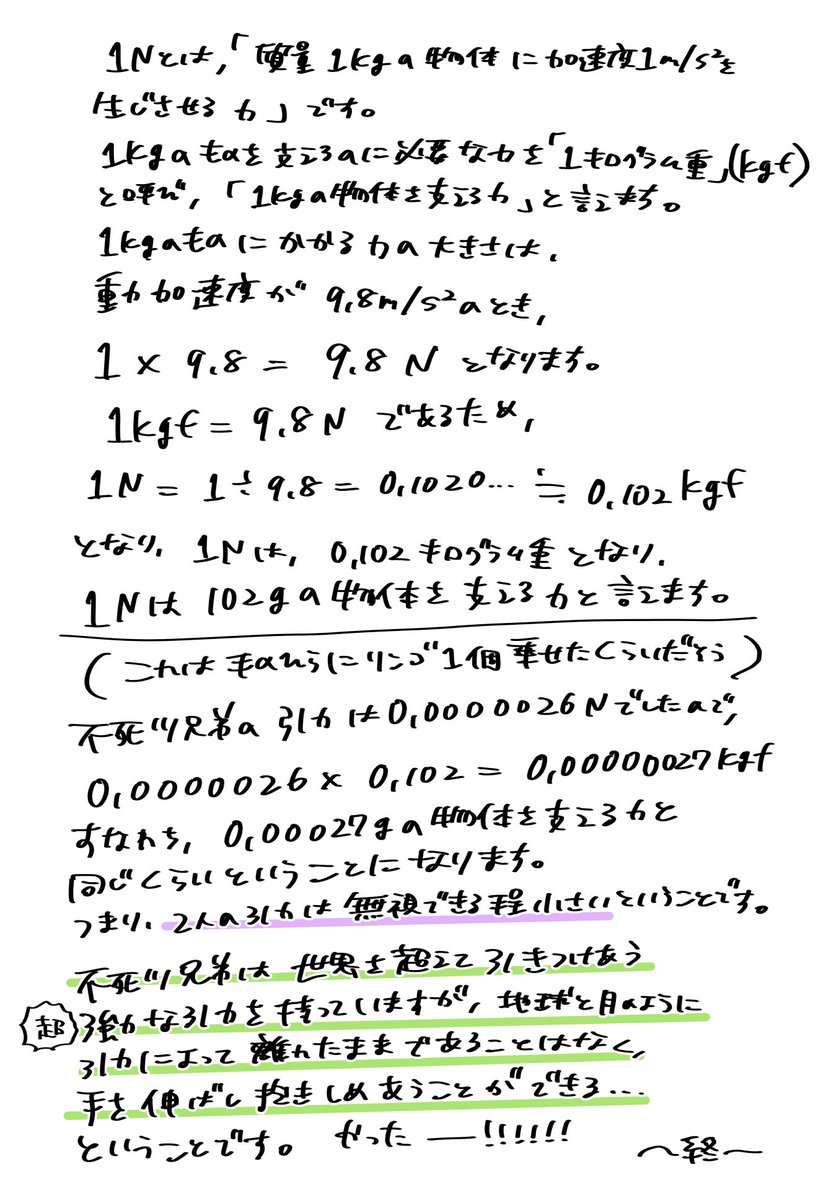 1Nとは,「質量1kgの物体に加速度1m/s²を
生じさせる力」です。
1kgのものを支えるのに必要な力を「1キログラム重」(kgf)
と呼び,「1kgの物体を支える力」と言えます。
1kgのものにかかる力の大きさは,
重力加速度が 9.8m/s²のとき,
1 × 9.8 = 9.8 N となります。
1kgf = 9.8N であるため,
1N = 1÷9.8 = 0.1020… ≒ 0.102kgf
となり, 1Nは, 0.102キログラム重となり,
1Nは102gの物体を支える力と言えます。
(これは手のひらにリンゴ1個乗せたくらいだそう)
不死川兄弟の引力は0.0000026Nでしたので,
0.0000026 × 0.102 = 0.00000027kgf
すなわち, 0.00027gの物体を支える力と
同じくらいということになります。
つまり, 2人の引力は無視できる程小さいということです。
不死川兄弟は世界を超えて引きつけあう
超
強力な引力を持っていますが, 地球と月のように
引力によって離れたままであることはなく,
手を伸ばし抱きしめあうことができる…
ということです。 やったー!!!!!!
〜終〜